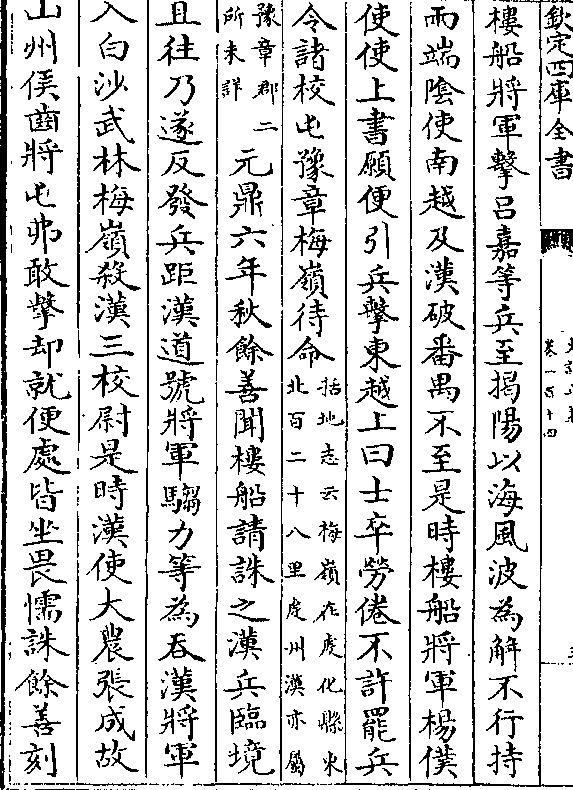 欽定四庫全書
卷一百十四
樓船將軍擊呂嘉等兵至揭陽以海風波為解不行持
兩端陰使南越及漢破番禺不至是時樓船將軍楊僕
使使上書願便引兵擊東越上曰士卒勞倦不許罷兵
令諸校屯豫章梅嶺待命括地志云梅嶺在虔化縣東北百二十八里虔州漢亦屬
豫章郡二所未詳元鼎六年秋餘善聞樓船請誅之漢兵臨境
且往乃遂反發兵距漢道號將軍騶力等為吞漢將軍
入白沙武林梅嶺殺漢三校尉是時漢使大農張成故
山州侯齒將屯弗敢擊却就便處皆坐畏懦誅餘善刻